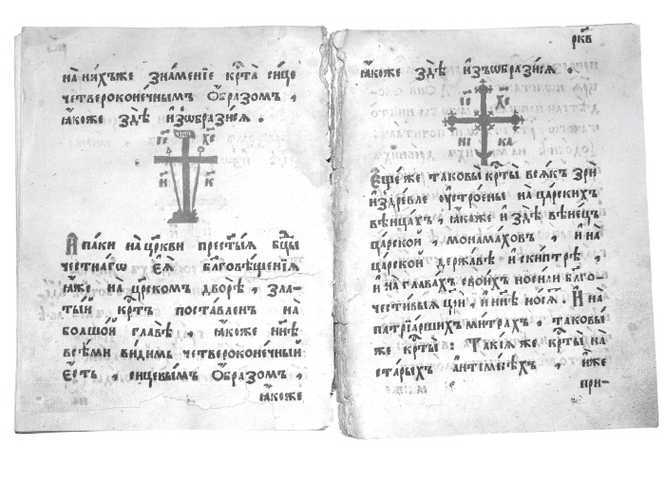 на нѧ́хъже зна́менїе крⷭ҇та̀ си́це
четвероконе́чнымъ Ѻ҆́бразомъ ,
ꙗ҆́коже здѣ̀ и҆з̾ѡбрази́сѧ .
І҆с҃ Хс҃
Н҆ К҆
А҆ па́ки на цр҃кви прест҃ы́ѧ бц҃ы
честна́гѡ є҆ѧ̀ бл҃гове́щенїѧ
ꙗ҆́же , на црⷭ҇комъ дворѣ̀ , Зла-
ты́й крⷭ҇тъ поста́вленъ на
болшо́й главѣ̀ , ꙗ҆́коже нн҃ѣ
всѣ́ми ви́димъ четвероконе́чный
є҆́сть , си́цевымъ Ѻ҆́бразомъ ,
ꙗ҆́коже
рк҃в
ꙗ҆́коже здѣ̀ и҆з̾ѡбрази́сѧ .
І҆с҃ Хс҃
НИ КА
Є҆ще́ же таковы̀ крⷭ҇ты̀ всѧ́къ зрѝ
и҆здре́вле ᲂу҆стро́ены на ца́рскихъ
вѣнца́хъ , ꙗ҆́коже и҆ здѣ̀ вѣне́цъ
ца́рской , монама́ховъ , и҆ на
ца́рской держа́вѣ и҆ ски́птрѣ ,
и҆ на глава́хъ свои́хъ носи́ли бл҃го-
чести́выѧ цр҃и , и҆ нн҃ѣ но́сѧ . И҆ на
патрїа́ршихъ ми́трахъ , таковы́
же крⷭ҇ты̀ : Такі́ѧ же крⷭ҇ты̀ на
ста́рыхъ а҆нтими́нсѣхъ , и҆́же
при-